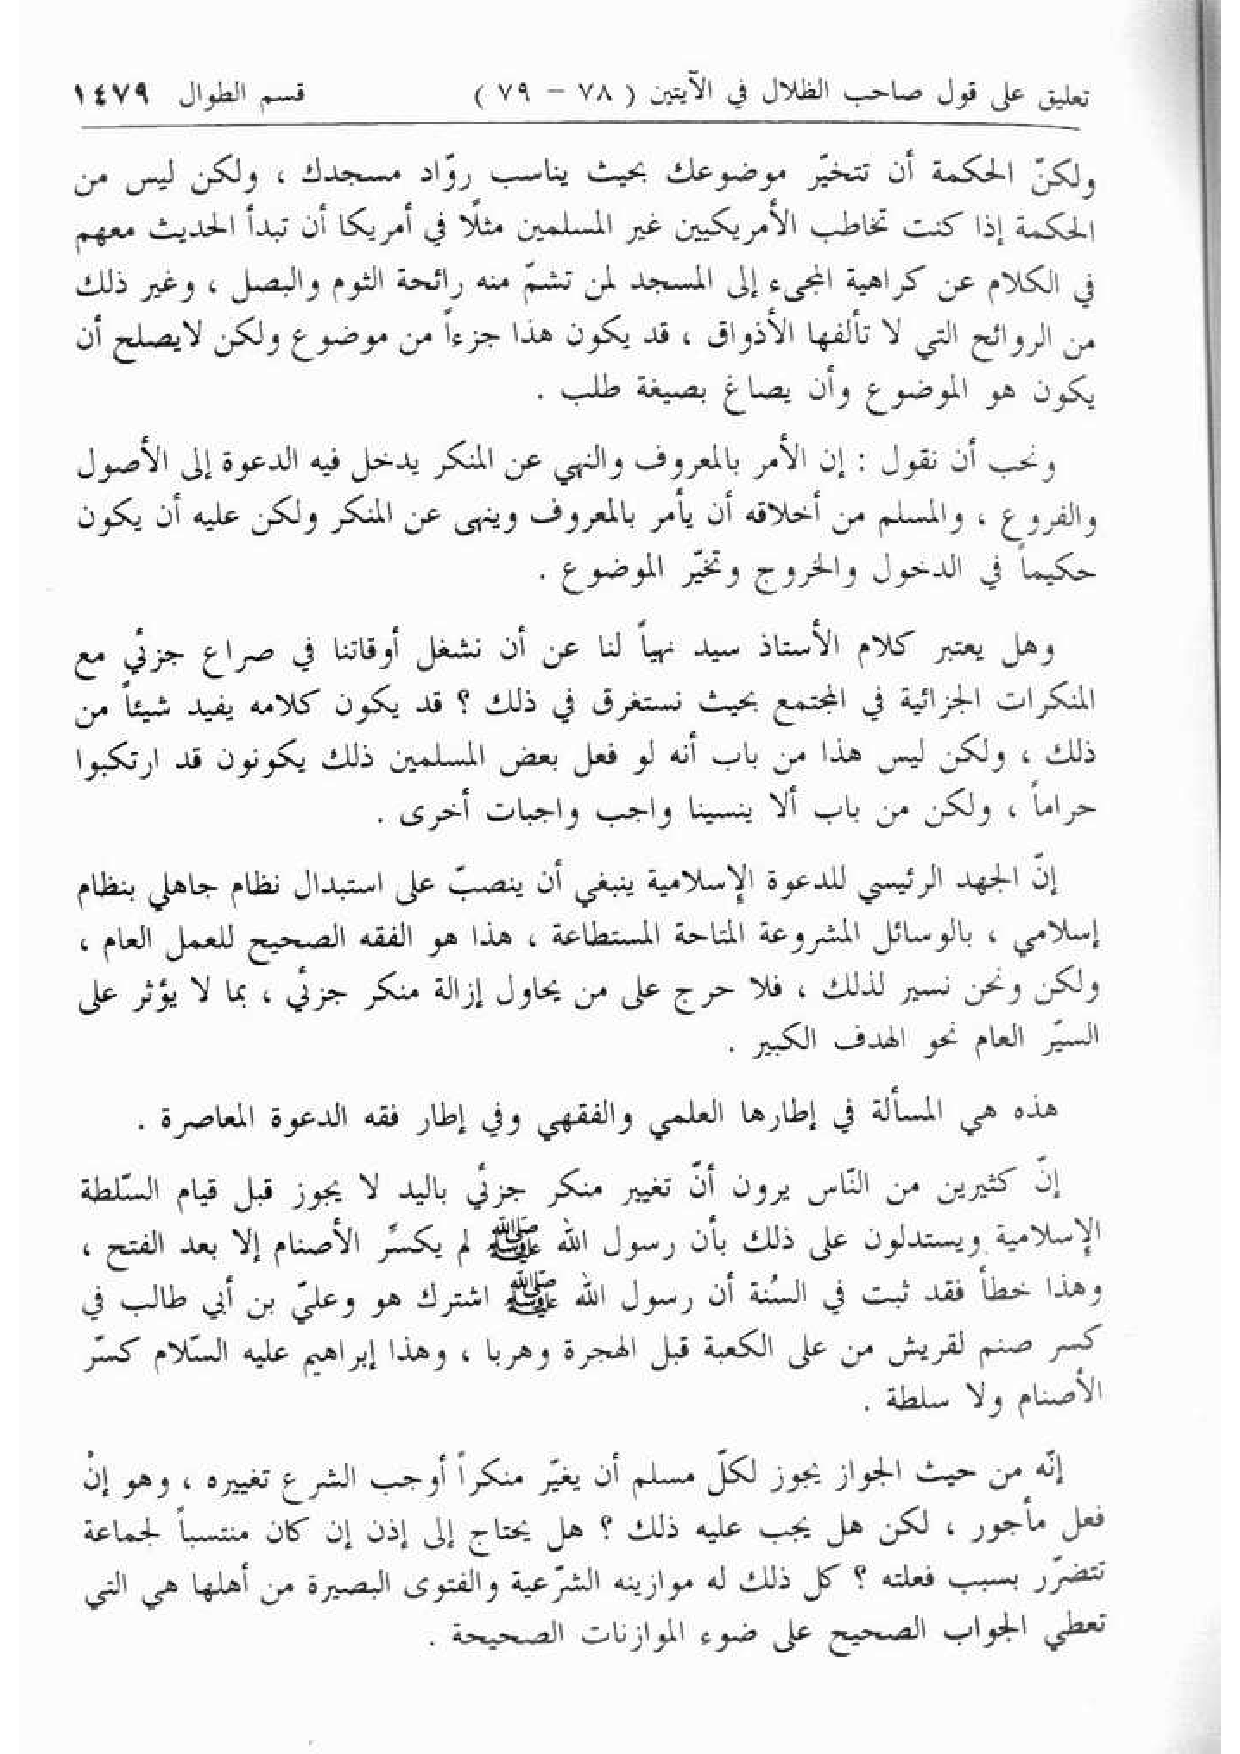 تعليق على قول صاحب الظلال في الآيتين ( ٧٨ - ٧٩ ) قسم الطوال ١٤٧٩
ولكنّ الحكمة أن تتخيّر موضوعك بحيث يناسب روّاد مسجدك ، ولكن ليس من
الحكمة إذا كنت تخاطب الأمريكيين غير المسلمين مثلًا في أمريكا أن تبدأ الحديث معهم
في الكلام عن كراهية المجيء إلى المسجد لمن تشمّ منه رائحة الثوم والبصل ، وغير ذلك
من الروائح التي لا تألفها الأذواق ، قد يكون هذا جزءاً من موضوع ولكن لايصلح أن
يكون هو الموضوع وأن يصاغ بصيغة طلب .
ونحب أن نقول : إن الأمر بالمعروف والنهي عن المنكر يدخل فيه الدعوة إلى الأصول
والفروع ، والمسلم من أخلاقه أن يأمر بالمعروف وينهى عن المنكر ولكن عليه أن يكون
حكيماً في الدخول والخروج وتخيّر الموضوع .
وهل يعتبر كلام الأستاذ سيد نهياً لنا عن أن نشغل أوقاتنا في صراع جزئي مع
المنكرات الجزائية في المجتمع بحيث نستغرق في ذلك ؟ قد يكون كلامه يفيد شيئاً من
ذلك ، ولكن ليس هذا من باب أنه لو فعل بعض المسلمين ذلك يكونون قد ارتكبوا
حراماً ، ولكن من باب ألا ينسينا واجب واجبات أخرى .
إنّ الجهد الرئيسي للدعوة الإسلامية ينبغي أن ينصبّ على استبدال نظام جاهلي بنظام
إسلامي ، بالوسائل المشروعة المتاحة المستطاعة ، هذا هو الفقه الصحيح للعمل العام ،
ولكن ونحن نسير لذلك ، فلا حرج على من يحاول إزالة منكر جزئي ، بما لا يؤثر على
السيّر العام نحو الهدف الكبير .
هذه هي المسألة في إطارها العلمي والفقهي وفي إطار فقه الدعوة المعاصرة .
إنّ كثيرين من النّاس يرون أنّ تغيير منكر جزئي باليد لا يجوز قبل قيام السّلطة
الإسلامية ويستدلون على ذلك بأن رسول الله ﷺ لم يكسّر الأصنام إلا بعد الفتح ،
وهذا خطأ فقد ثبت في السُنة أن رسول الله ﷺ اشترك هو وعليّ بن أبي طالب في
كسر صنم لقريش من على الكعبة قبل الهجرة وهربا ، وهذا إبراهيم عليه السّلام كسّر
الأصنام ولا سلطة .
إنّه من حيث الجواز يجوز لكلّ مسلم أن يغيّر منكراً أوجب الشرع تغييره ، وهو إنْ
فعل مأجور ، لكن هل يجب عليه ذلك ؟ هل يحتاج إلى إذن إن كان منتسباً لجماعة
تتضرّر بسبب فعلته ؟ كل ذلك له موازينه الشرّعية والفتوى البصيرة من أهلها هي التي
تعطي الجواب الصحيح على ضوء الموازنات الصحيحة .